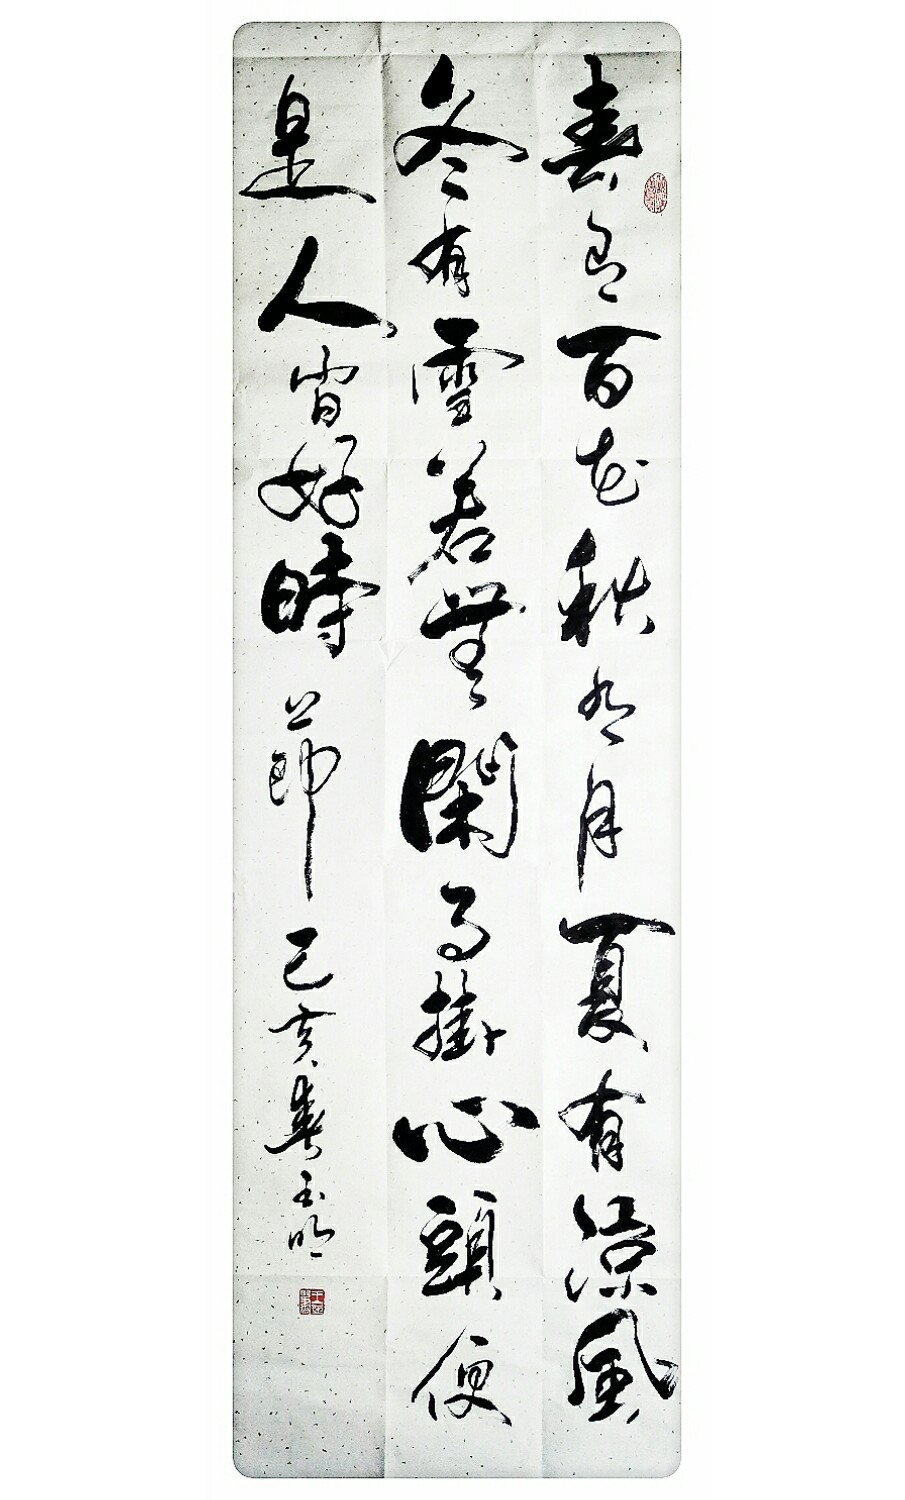 春有百花秋有月夏有涼風
冬有雪若無閑事掛心頭便
是人間好時節己亥春玉明